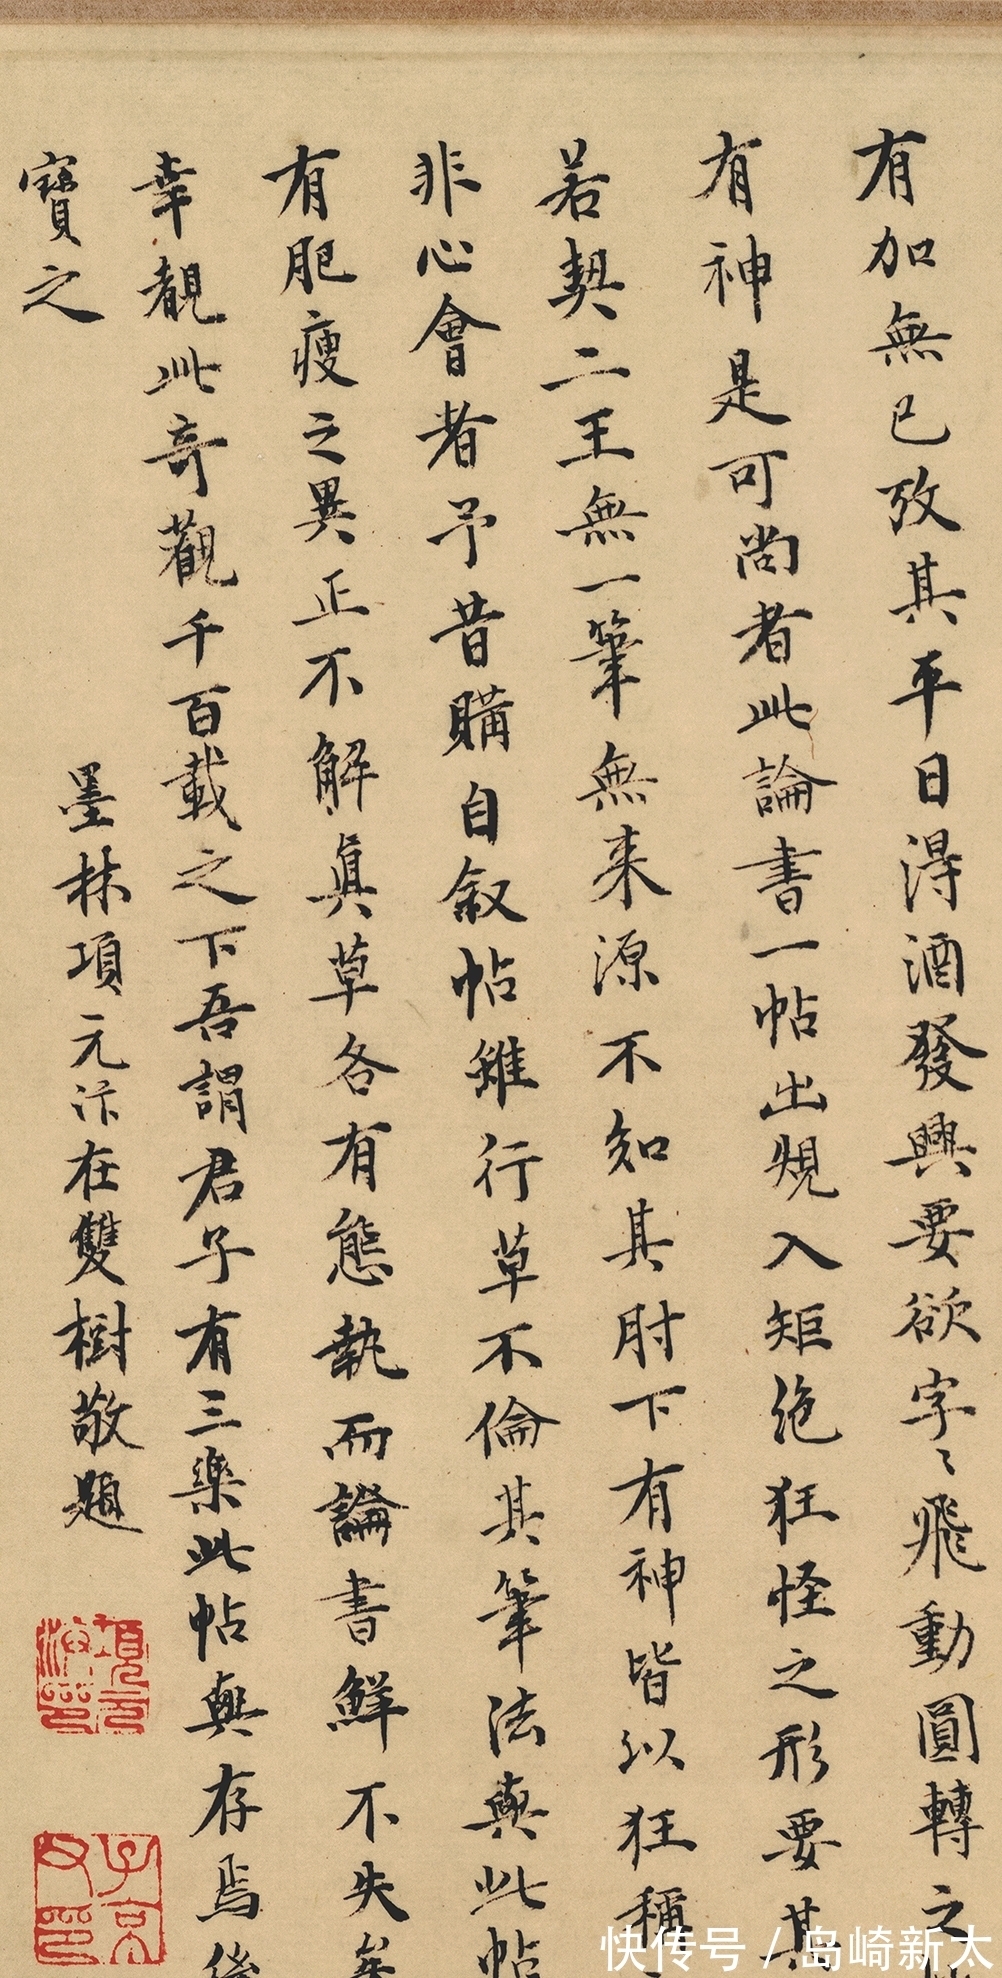 有加無已攷其平日得酒發興要欲字〻飛動圓轉之
有神是可尚者此論書一帖出規入矩絶狂怪之形要其
若契二王無一筆無来源不知其肘下有神皆以狂稱
非心會者予昔購自叙帖雖行草不倫其筆法與此帖
有肥瘦之異正不解真草各有態執而論書鮮不失矣
幸覩此奇觀千百載之下吾謂君子有三樂此帖與存焉後
寶之
墨林項元汴在雙樹敬題
項元汴印
子京父印
快传号/岛崎新太